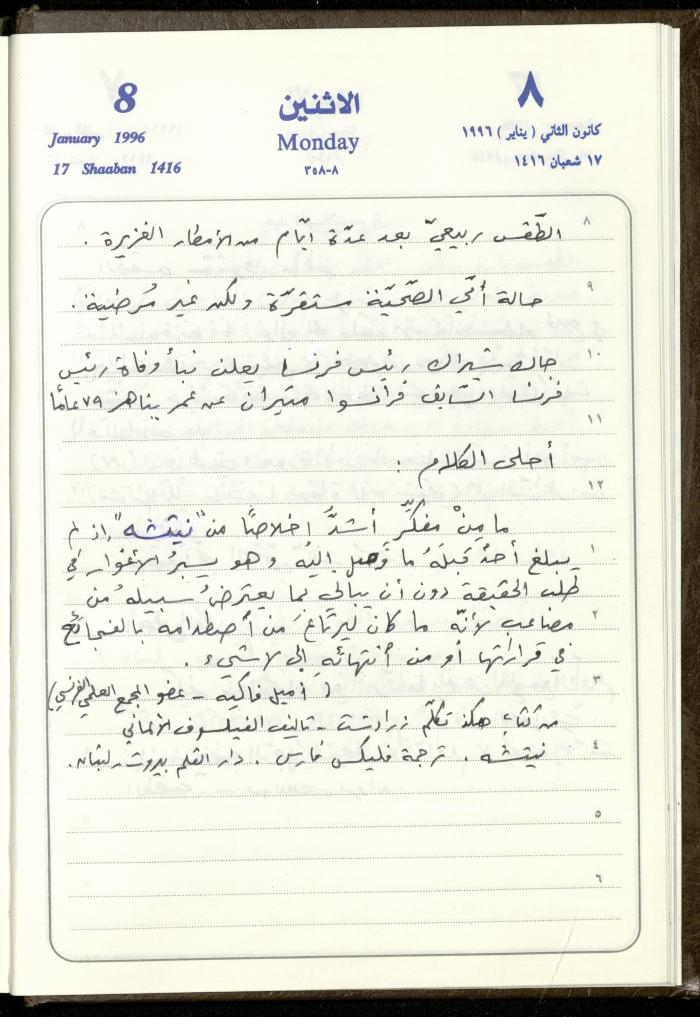 8
الاثنين
٨
January 1996
Monday
كانون الثاني ( يناير ) ١٩٩٦
17 Shaaban 1416
٨-٣٥٨
١٧ شعبان ١٤١٦
٨
الطّقس ربيعيّ بعد عدّة أيّام من الأمطار الغزيرة .
٩
حالة أمّي الصّحيّة مستقرّة ولكن غير مُرضية .
١٠
جاك شيراك رئيس فرنسا يعلن نبأ وفاة رئيس
فرنسا السّابق فرانسوا متيران عن عمر يناهز ٧٩ عامًا
١١
أحلى الكلام :
١٢
ما مِنْ مفكِّر أشدُّ إخلاصًا من "نيتشه" إذ لم
١
يبلغ أحدٌ قبلَهُ ما وصل إليه وهو يسبرُ الأغوار في
طلب الحقيقة دون أن يبالي بما يعترضُ سبيله من
٢
مصاعب لأنّه ما كان ليرتاعَ من أصطدامه بالفجائع
في قرارتها أو من أنتهائهِ إلى لا شيء .
٣
( أميل فاكيه - عضو المجمع العلمي الفرنسي )
من كتاب هكذا تكلّم زرادشت - تأليف الفيلسوف الألماني
٤
نيتشه . ترجمة فليكس فارس . دار القلم بيروت - لبنان .
٥
٦